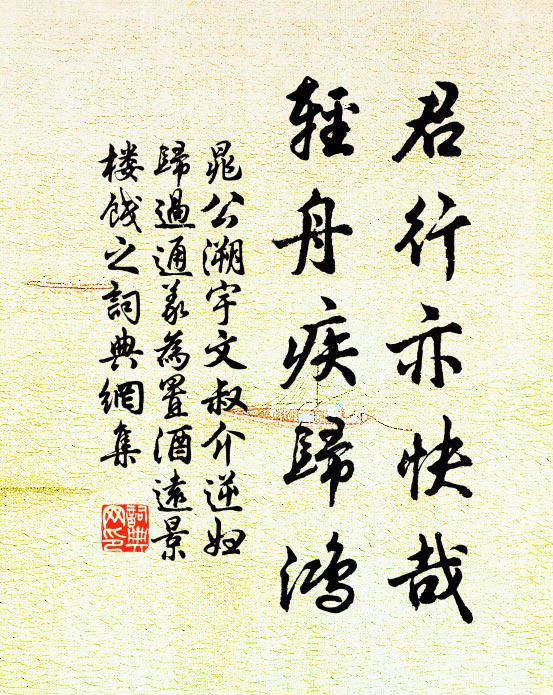 君行亦快哉
輕舟疾歸鴻
晁公溯宇文叔介逆妇
歸過通義為置酒遠景
楼餞之詞典網集
詞典
网印